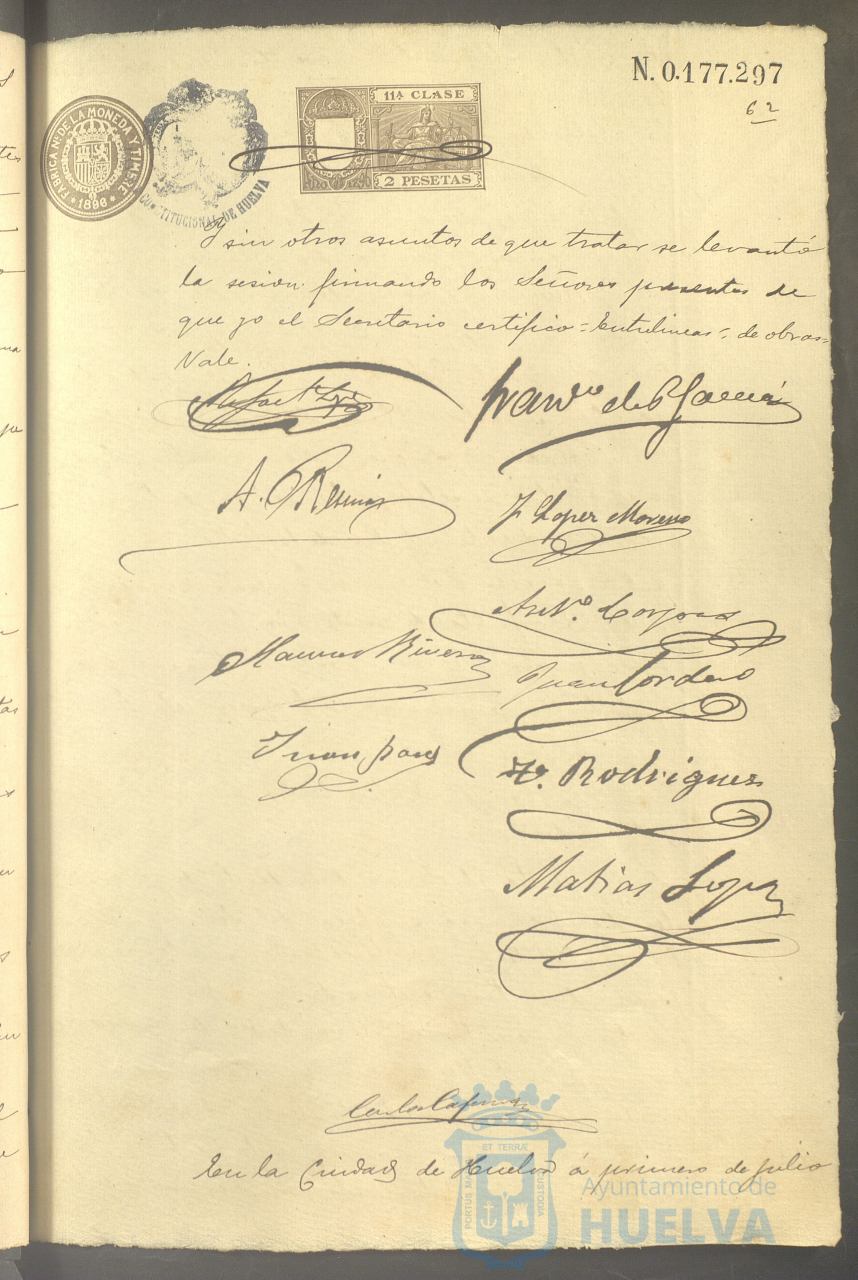 N. 0.177.297
62
FABRICA NAL DE LA MONEDA Y TIMBRE
1896
CONSTITUCIONAL DE HUELVA
11ª CLASE
2 PESETAS
Y sin otros asuntos de que tratar se levantó
la sesion firmando los Señores presentes de
que yo el Secretario certifico = Entrelineas =, de obras =
Vale.
Franco de P. García
A. Resinas
J Lopez Moreno
Antº.
Manuel Rivera
Juan Cordero
Juan
Fº. Rodriguez
Matias Lopez
Carlos
En la Ciudad de Huelva á primero de Julio
ET TERRÆ
PORTUS MA
CUSTODIA
Ayuntamiento de
HUELVA